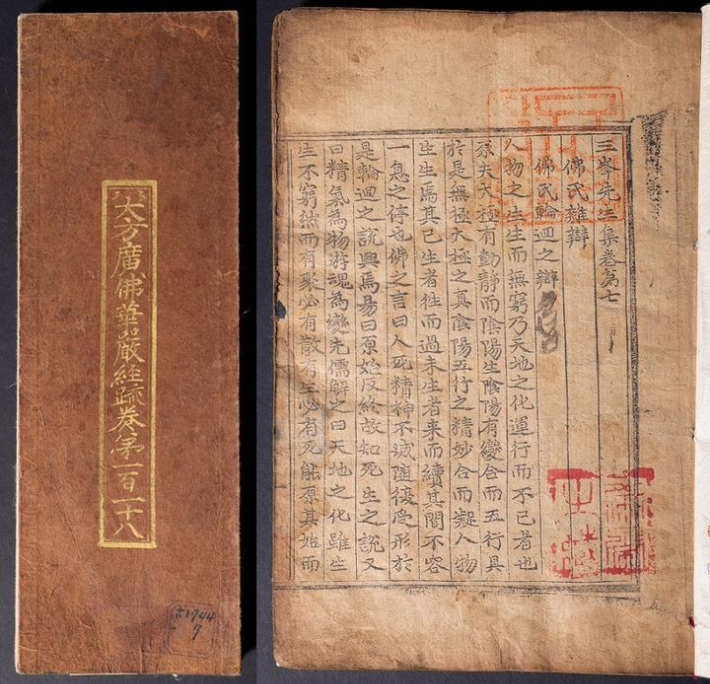 大方廣佛華嚴經䟽卷第一百一十八
古1744
7
三峯先生集卷第七
佛氏雜辯
佛氏輪廻之辯
人物之生生而無窮乃天地之化運行而不已者也
原夫大極有動靜而陰陽生陰陽有變合而五行具
於是無極大極之真陰陽五行之精妙合而凝人物
生生焉其已生者徃而過未生者来而續其間不容
一息之停也佛之言曰人死精神不滅隨復受形於
是輪廻之說興焉易曰原始反終故知死生之說又
曰精氣為物游魂為變先儒解之曰天地之化雖生
生不窮然而有聚必有散有生必有死能原其始而